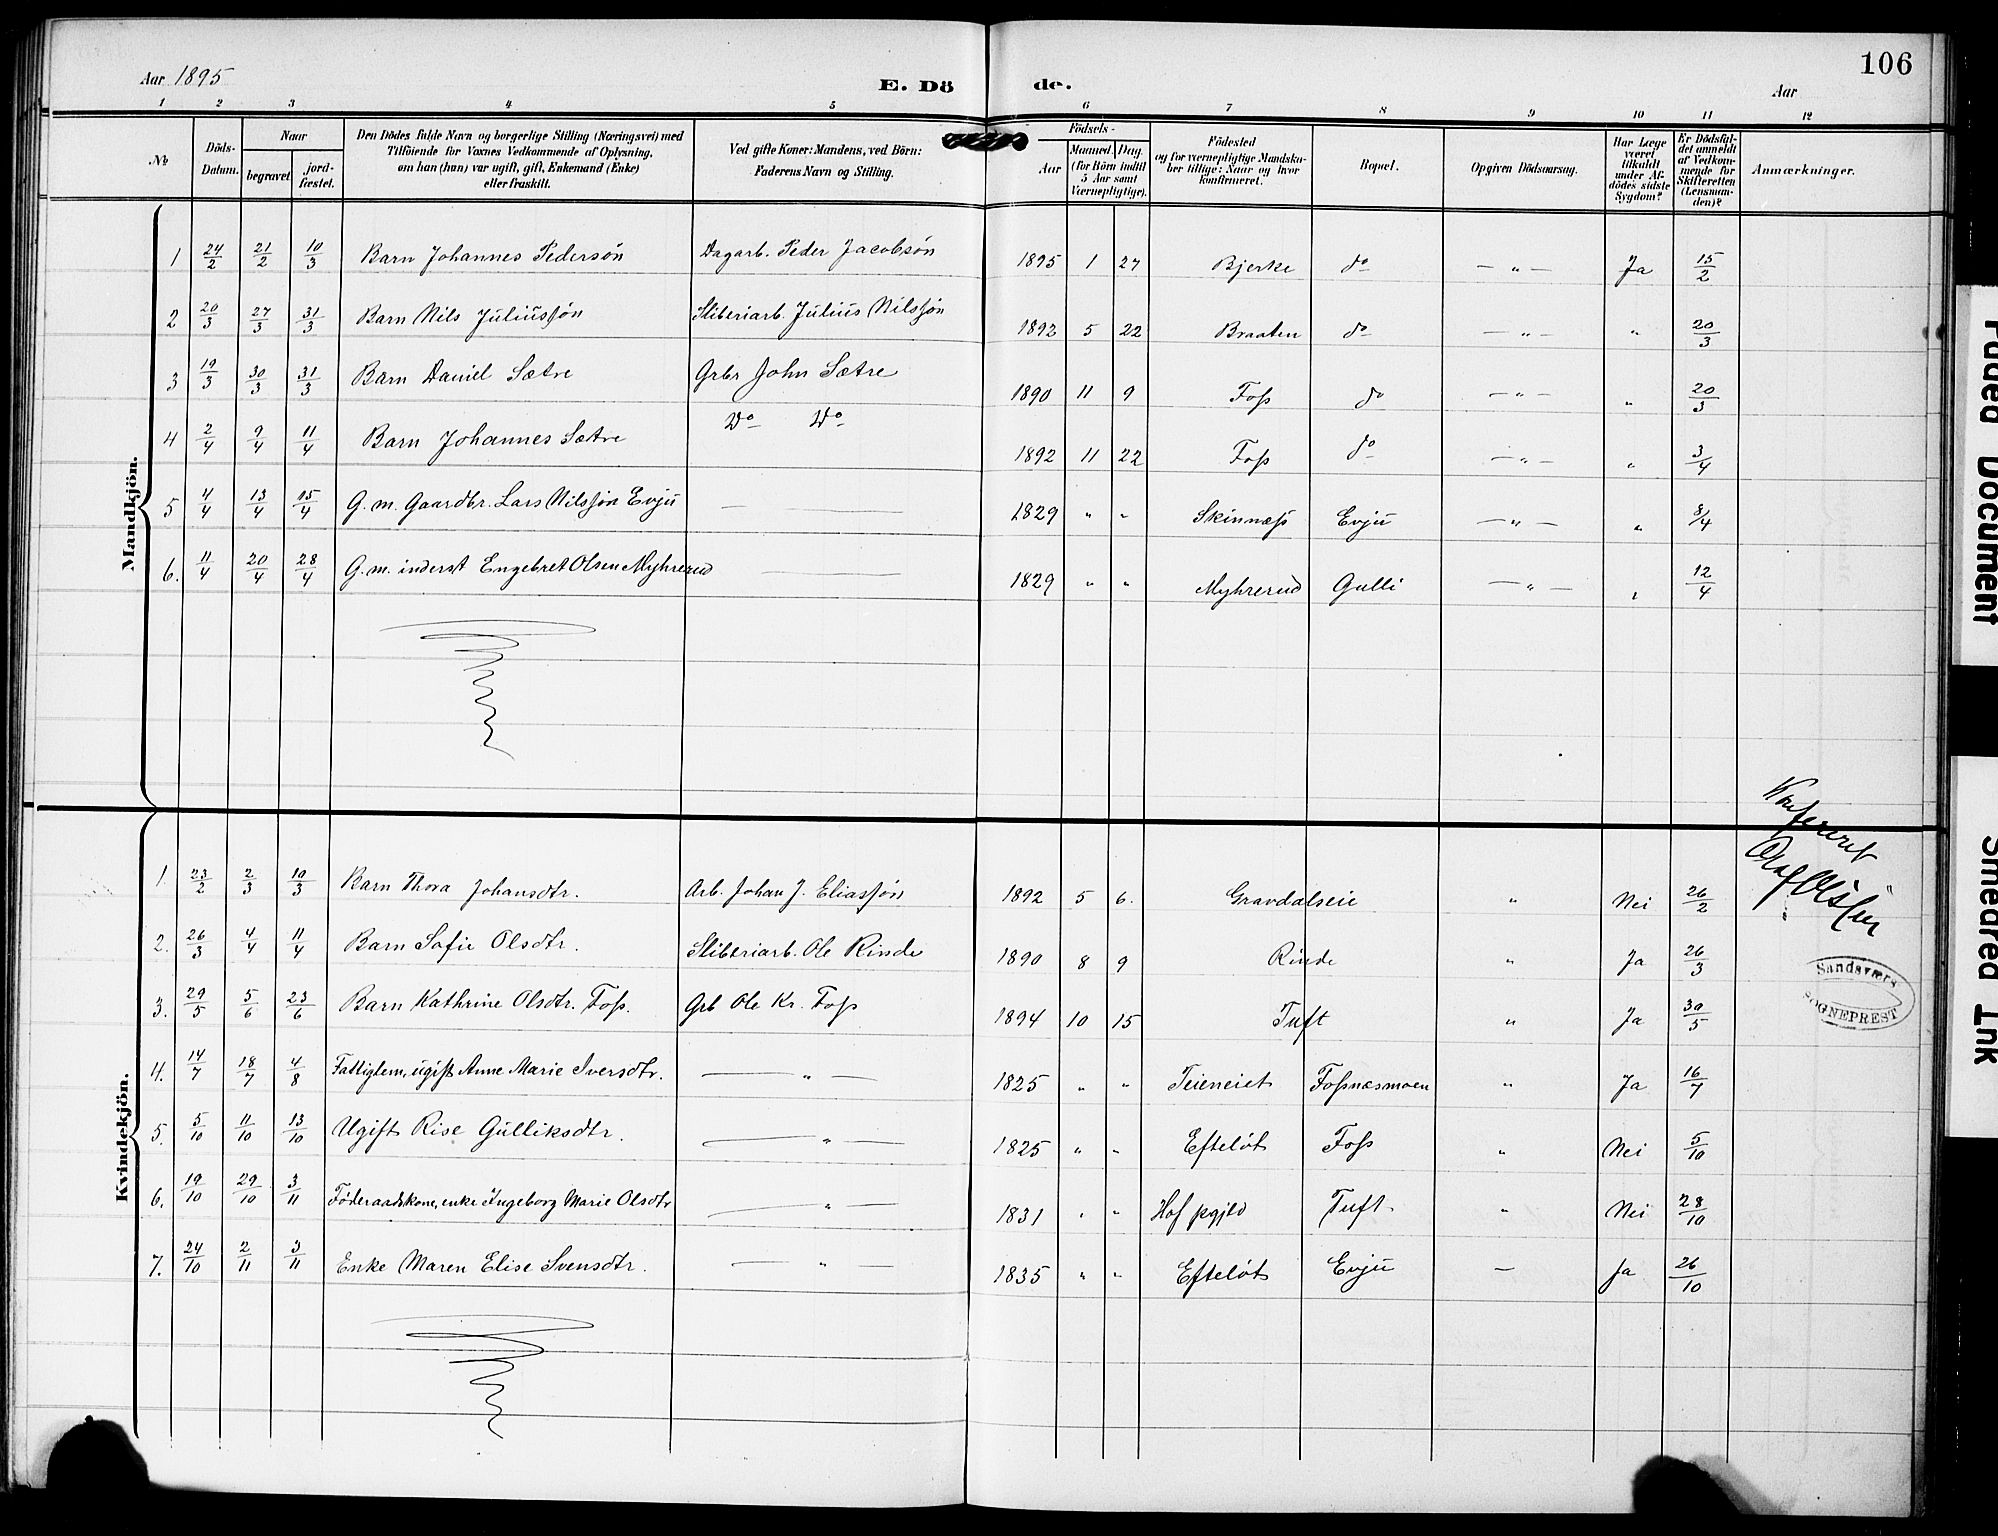 106
Aar 1895
E. Dö de.
Aar
1 2 3 4 5 6 7 8 9 10 11 12
No
Döds-Datum.
Naar
begravet
jord-fæstet.
Den Dödes fulde Navn og borgerlige Stilling (Næringsvei) med
Tilföiende for Voxnes Vedkommende af Oplysning,
om han (hun) var ugift, gift, Enkemand (Enke)
eller fraskilt.
Ved gifte Koner: Mandens, ved Börn:
Faderens Navn og Stilling.
Födsels-
Aar
Maaned. Dag.
(for Börn indtil
5 Aar samt
Værnepligtige).
Födested
og for værnepligtige Mandska-
ber tillige: Naar og hvor
konfirmeret.
Bopæl.
Opgiven Dödsaarsag.
Har Læge
været
tilkaldt
under Af-
dödes sidste
Sygdom?
Er Dödsfal-
det anmeldt
af Vedkom-
mende for
Skifteretten
(Lensman-
den)?
Anmærkninger.
Mandkjön.
1 24/2 21/2 10/3 Barn Johannes Pedersøn Dagarb. Peder Jacobsøn 1895 1 27 Bjerke do — " — Ja 15/2
2 20/3 27/3 31/3 Barn Nils Juliusføn Sliberiarb. Julius Nilsføn 1892 5 22 Braaten do — " — " 20/3
3 19/3 30/3 31/3 Barn Daniel Sætre Grbr John Sætre 1890 11 9 Foss do — " — " 20/3
4 2/4 9/4 11/4 Barn Johannes Sætre Do Do 1892 11 22 Foss do — " — " 3/4
5 4/4 13/4 15/4 G. m. Gaardbr. Lars Nilsføn Evju — 1829 " " Skinness Evju — " — " 8/4
6. 11/4 20/4 28/4 G. m. inderst Engebret Olsen Myhrerud — 1829 " " Myhrerud Gulli — " — " 12/4
Kvindekjön.
1. 23/2 2/3 10/3 Barn Thora Johansdtr. Arb. Johan J. Eliasføn 1892 5 6. Gravdalseie " Nei 26/2
2. 26/3 4/4 11/4 Barn Sofie Olsdtr. Sliberiarb. Ole Rinde 1890 8 9 Rinde " Ja 26/3
3. 29/5 5/6 23/6 Barn Kathrine Olsdtr. Foss. Grb Ole Kr. Foss 1894 10 15 Tuft " Ja 30/5
4. 14/7 18/7 4/8 Fattiglem, ugift Anne Marie Iversdtr. — " — 1825 " " Teieneiet Fossnæsmoen " Ja 16/7
5. 5/10 11/10 13/10 Ugift Rise Gulliksdtr. — " — 1825 " " Efteløt Foss " Nei 5/10
6. 19/10 29/10 3/11 Føderaadskone, enke Ingeborg Marie Olsdtr — " — 1831 " " Hof pgjld Tuft " Nei 28/10
7. 24/10 2/11 3/11 Enke Maren Elise Svensdtr. — " — 1835 " " Efteløt Evju — Ja 26/10
Konfereret
Olaf Olssen
Sandsværs
SOGNEPREST
Faded Document
Smeared Ink